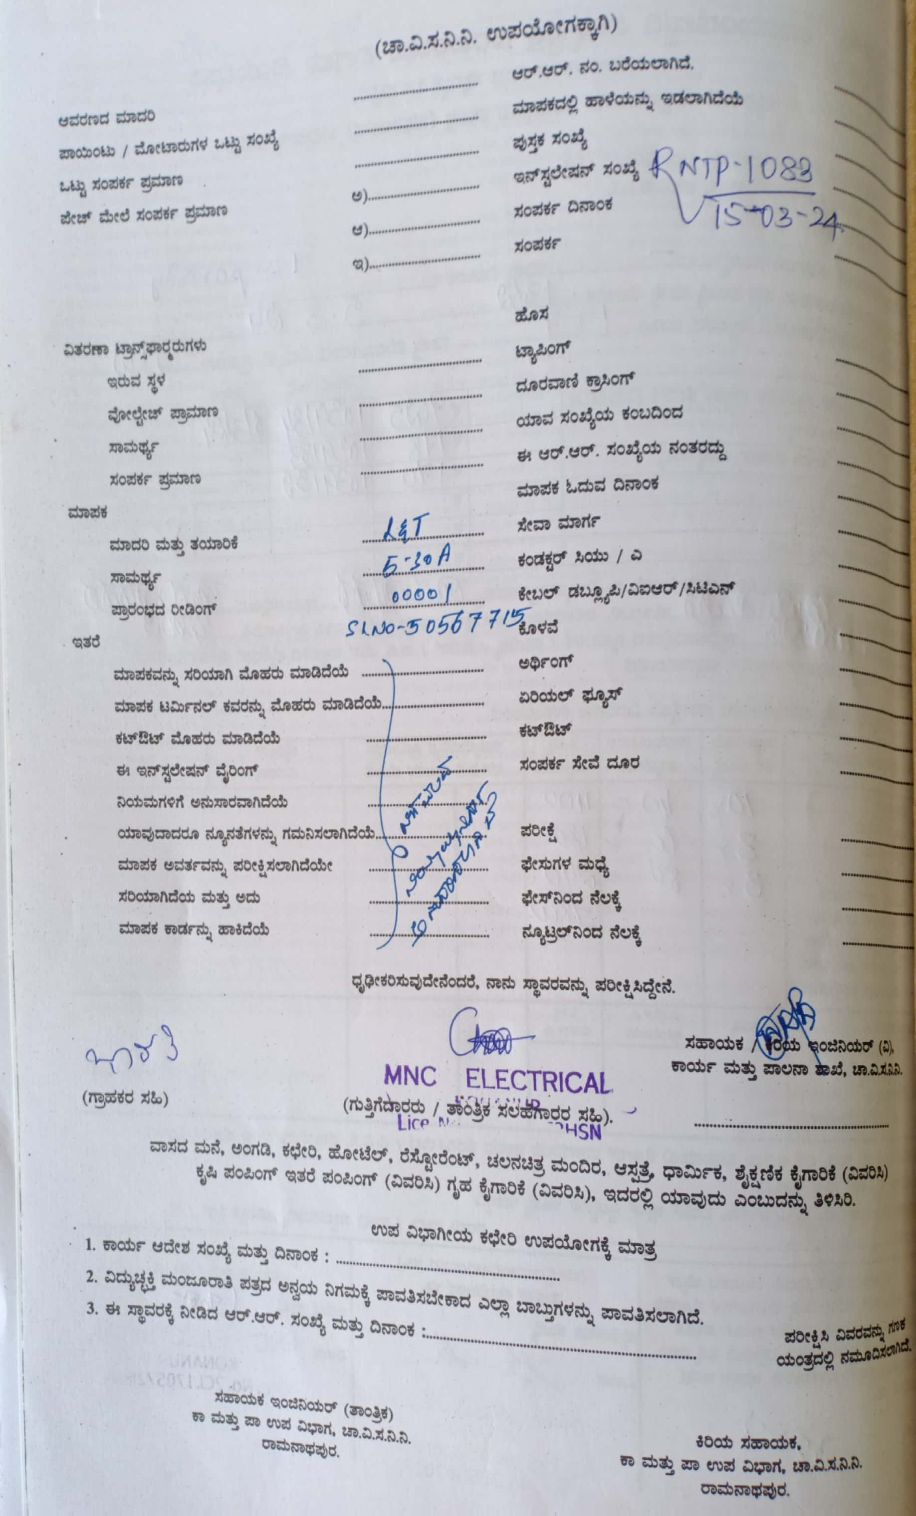 (ಚಾ.ವಿ.ಸ.ನಿ.ನಿ. ಉಪಯೋಗಕ್ಕಾಗಿ)
ಆವರಣದ ಮಾದರಿ
ಪಾಯಿಂಟು / ಮೋಟಾರುಗಳ ಒಟ್ಟು ಸಂಖ್ಯೆ
ಒಟ್ಟು ಸಂಪರ್ಕ ಪ್ರಮಾಣ
ಪೇಚ್ ಮೇಲೆ ಸಂಪರ್ಕ ಪ್ರಮಾಣ
ಅ)
ಆ)
ಇ)
ಆರ್.ಆರ್. ನಂ. ಬರೆಯಲಾಗಿದೆ.
ಮಾಪಕದಲ್ಲಿ ಹಾಳೆಯನ್ನು ಇಡಲಾಗಿದೆಯೆ
ಪುಸ್ತಕ ಸಂಖ್ಯೆ
ಇನ್‌ಸ್ಟಲೇಷನ್ ಸಂಖ್ಯೆ RNTP-1083
ಸಂಪರ್ಕ ದಿನಾಂಕ 15-03-24
ಸಂಪರ್ಕ
ಹೊಸ
ಟ್ಯಾಪಿಂಗ್
ದೂರವಾಣಿ ಕ್ರಾಸಿಂಗ್
ಯಾವ ಸಂಖ್ಯೆಯ ಕಂಬದಿಂದ
ಈ ಆರ್.ಆರ್. ಸಂಖ್ಯೆಯ ನಂತರದ್ದು
ಮಾಪಕ ಓದುವ ದಿನಾಂಕ
ಸೇವಾ ಮಾರ್ಗ
ಕಂಡಕ್ಟರ್ ಸಿಯು / ಎ
ಕೇಬಲ್ ಡಬ್ಲ್ಯೂಪಿ/ವಿಐಆರ್/ಸಿಟಿಎಸ್
ಕೊಳವೆ
ಅರ್ಥಿಂಗ್
ಏರಿಯಲ್ ಫ್ಯೂಸ್
ಕಟ್‌ಔಟ್
ಸಂಪರ್ಕ ಸೇವೆ ದೂರ
ಪರೀಕ್ಷೆ
ಫೇಸುಗಳ ಮಧ್ಯೆ
ಫೇಸ್‌ನಿಂದ ನೆಲಕ್ಕೆ
ನ್ಯೂಟ್ರಲ್‌ನಿಂದ ನೆಲಕ್ಕೆ
ವಿತರಣಾ ಟ್ರಾನ್ಸ್‌ಫಾರ್‍ಮರುಗಳು
ಇರುವ ಸ್ಥಳ
ವೋಲ್ಟೇಜ್ ಪ್ರಾಮಾಣ
ಸಾಮರ್ಥ್ಯ
ಸಂಪರ್ಕ ಪ್ರಮಾಣ
ಮಾಪಕ
ಮಾದರಿ ಮತ್ತು ತಯಾರಿಕೆ L&T
ಸಾಮರ್ಥ್ಯ 5-30A
ಪ್ರಾರಂಭದ ರೀಡಿಂಗ್ 00001
SLNO-50567715
ಇತರೆ
ಮಾಪಕವನ್ನು ಸರಿಯಾಗಿ ಮೊಹರು ಮಾಡಿದೆಯೆ
ಮಾಪಕ ಟರ್ಮಿನಲ್ ಕವರನ್ನು ಮೊಹರು ಮಾಡಿದೆಯೆ
ಕಟ್‌ಔಟ್ ಮೊಹರು ಮಾಡಿದೆಯೆ
ಈ ಇನ್‌ಸ್ಟಲೇಷನ್ ವೈರಿಂಗ್
ನಿಯಮಗಳಿಗೆ ಅನುಸಾರವಾಗಿದೆಯೆ
ಯಾವುದಾದರೂ ನ್ಯೂನತೆಗಳನ್ನು ಗಮನಿಸಲಾಗಿದೆಯೆ
ಮಾಪಕ ಅವರ್ತವನ್ನು ಪರೀಕ್ಷಿಸಲಾಗಿದೆಯೇ
ಸರಿಯಾಗಿದೆಯ ಮತ್ತು ಅದು
ಮಾಪಕ ಕಾರ್ಡನ್ನು ಹಾಕಿದೆಯೆ
ಧೃಢೀಕರಿಸುವುದೇನೆಂದರೆ, ನಾನು ಸ್ಥಾವರವನ್ನು ಪರೀಕ್ಷಿಸಿದ್ದೇನೆ.
(ಗ್ರಾಹಕರ ಸಹಿ)
MNC ELECTRICAL
(ಗುತ್ತಿಗೆದಾರರು / ತಾಂತ್ರಿಕ ಸಲಹೆಗಾರರ ಸಹಿ).
ಸಹಾಯಕ / ಕಿರಿಯ ಇಂಜಿನಿಯರ್ (ವಿ),
ಕಾರ್ಯ ಮತ್ತು ಪಾಲನಾ ಶಾಖೆ, ಚಾ.ವಿ.ಸ.ನಿ.ನಿ.
ವಾಸದ ಮನೆ, ಅಂಗಡಿ, ಕಛೇರಿ, ಹೋಟೆಲ್, ರೆಸ್ಟೋರೆಂಟ್, ಚಲನಚಿತ್ರ ಮಂದಿರ, ಆಸ್ಪತ್ರೆ, ಧಾರ್ಮಿಕ, ಶೈಕ್ಷಣಿಕ ಕೈಗಾರಿಕೆ (ವಿವರಿಸಿ)
ಕೃಷಿ ಪಂಪಿಂಗ್ ಇತರೆ ಪಂಪಿಂಗ್ (ವಿವರಿಸಿ) ಗೃಹ ಕೈಗಾರಿಕೆ (ವಿವರಿಸಿ), ಇದರಲ್ಲಿ ಯಾವುದು ಎಂಬುದನ್ನು ತಿಳಿಸಿರಿ.
ಉಪ ವಿಭಾಗೀಯ ಕಛೇರಿ ಉಪಯೋಗಕ್ಕೆ ಮಾತ್ರ
1. ಕಾರ್ಯ ಆದೇಶ ಸಂಖ್ಯೆ ಮತ್ತು ದಿನಾಂಕ :
2. ವಿದ್ಯುಚ್ಛಕ್ತಿ ಮಂಜೂರಾತಿ ಪತ್ರದ ಅನ್ವಯ ನಿಗಮಕ್ಕೆ ಪಾವತಿಸಬೇಕಾದ ಎಲ್ಲಾ ಬಾಬ್ತುಗಳನ್ನು ಪಾವತಿಸಲಾಗಿದೆ.
3. ಈ ಸ್ಥಾವರಕ್ಕೆ ನೀಡಿದ ಆರ್.ಆರ್. ಸಂಖ್ಯೆ ಮತ್ತು ದಿನಾಂಕ :
ಪರೀಕ್ಷಿಸಿ ವಿವರವನ್ನು ಗಣಕ
ಯಂತ್ರದಲ್ಲಿ ನಮೂದಿಸಲಾಗಿದೆ.
ಸಹಾಯಕ ಇಂಜಿನಿಯರ್ (ತಾಂತ್ರಿಕ)
ಕಾ ಮತ್ತು ಪಾ ಉಪ ವಿಭಾಗ, ಚಾ.ವಿ.ಸ.ನಿ.ನಿ.
ರಾಮನಾಥಪುರ.
ಕಿರಿಯ ಸಹಾಯಕ,
ಕಾ ಮತ್ತು ಪಾ ಉಪ ವಿಭಾಗ, ಚಾ.ವಿ.ಸ.ನಿ.ನಿ.
ರಾಮನಾಥಪುರ.